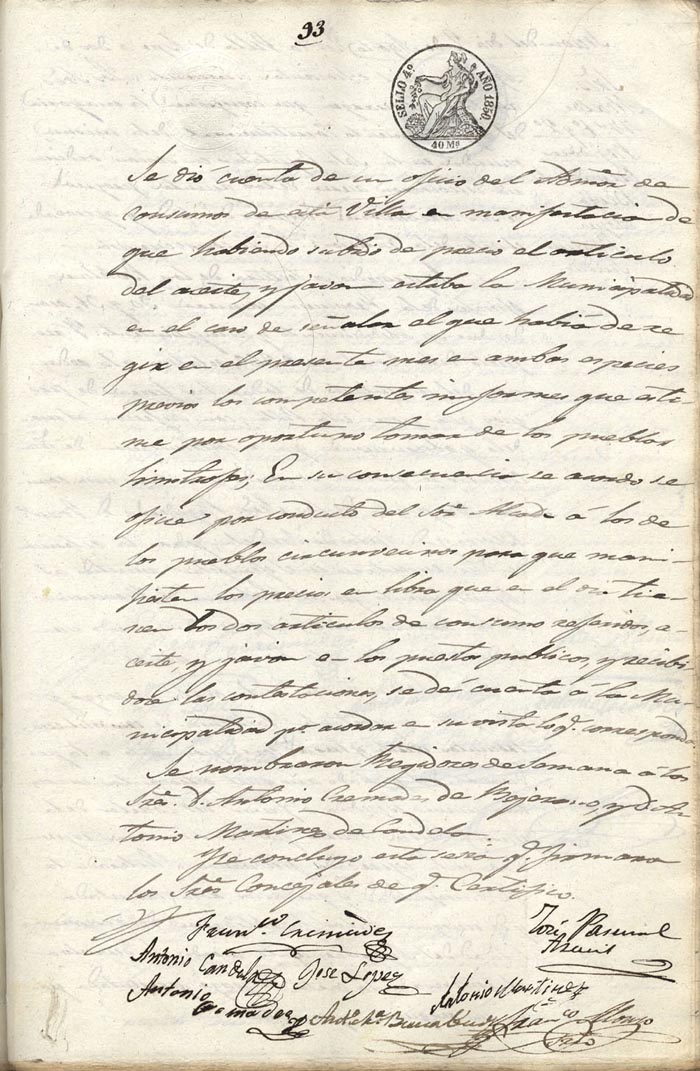 33
SELLO 4º AÑO 1850.
40 Ms
Se dió cuenta de un oficio del Admor. de
consumos de esta Villa en manifestacion de
que habiendo subido de precio el articulo
del aceite, y javon estaba la Municipalidad
en el caso de señalar el que habia de re
gir en el presente mes en ambas especies
previos los competentes informes que esti-
me por oportuno tomar de los pueblos
limitrofes; En su consecuencia se acordo se
oficie por conducto del Sor. Alcalde á los de
los pueblos circunvecinos para que mani-
fiesten los precios en libra que en el dia tie-
nen los dos articulos de consumo referidos, a-
ceite, y javon en los puestos publicos, y recibi-
das las contestaciones, se dé cuenta á la Mu-
nicipalidad pa. acordar en su vista lo q. corresponda.
Se nombraron Regidores de Semana á los
Sres. D. Antonio Cremades de Bojeroso, y D. An-
tonio Martinez de Candela.
Y se concluyó esta sesion q. firmaron
los Sres. Concejales de q. Certifico.
Franco. José Pascual
Antonio Candela Jose Lopez
Antonio Martinez
Antonio Cremades Franco. Alonso